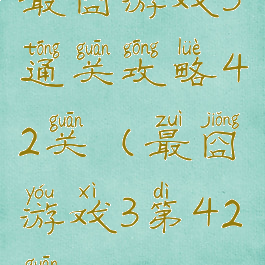 最囧游戏3
tōng guān gōng lüè
通关攻略4
guān zuì jiǒng
2关(最囧
yóu xì dì
游戏3第42
guān